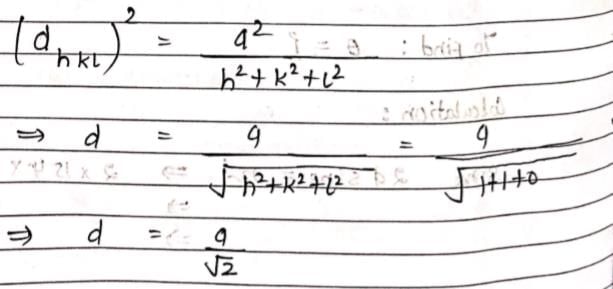 (d_hkl)² = a² / (h² + k² + l²)
⇒ d = a / √(h² + k² + l²) = a / √(1+1+0)
⇒ d = a / √2